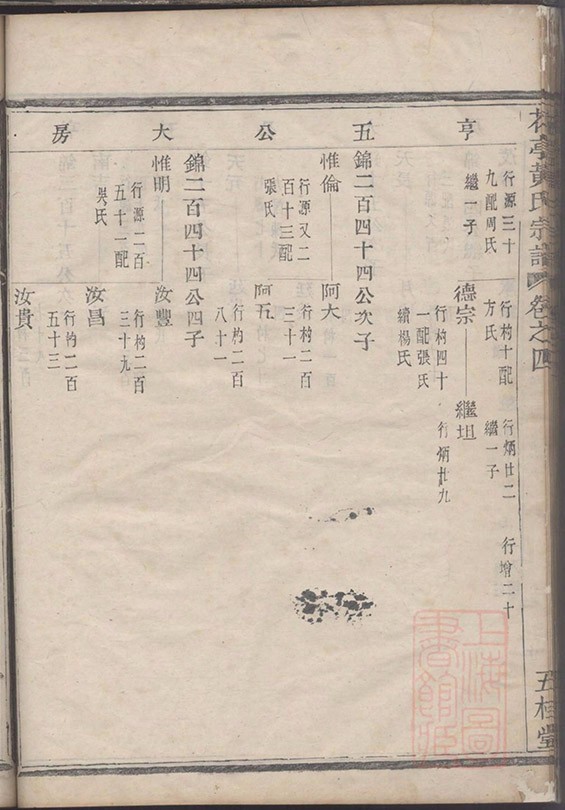 亨五公大房
行源三十
九配周氏
繼一子
行杓十配
方氏
行炳廿二
繼一子
行增二十
德宗
行杓四十
一配張氏
續楊氏
繼坦
行炳廿九
錦二百四十四公次子
惟倫
行源又二
百十三配
張氏
阿大
行杓二百
三十一
阿五
行杓二百
八十一
錦二百四十四公四子
惟明
行源二百
五十一配
吳氏
汝豐
行杓二百
三十九
汝昌
行杓二百
五十三
汝貴
黃氏宗譜
卷之四
五桂堂
上海圖
書館藏